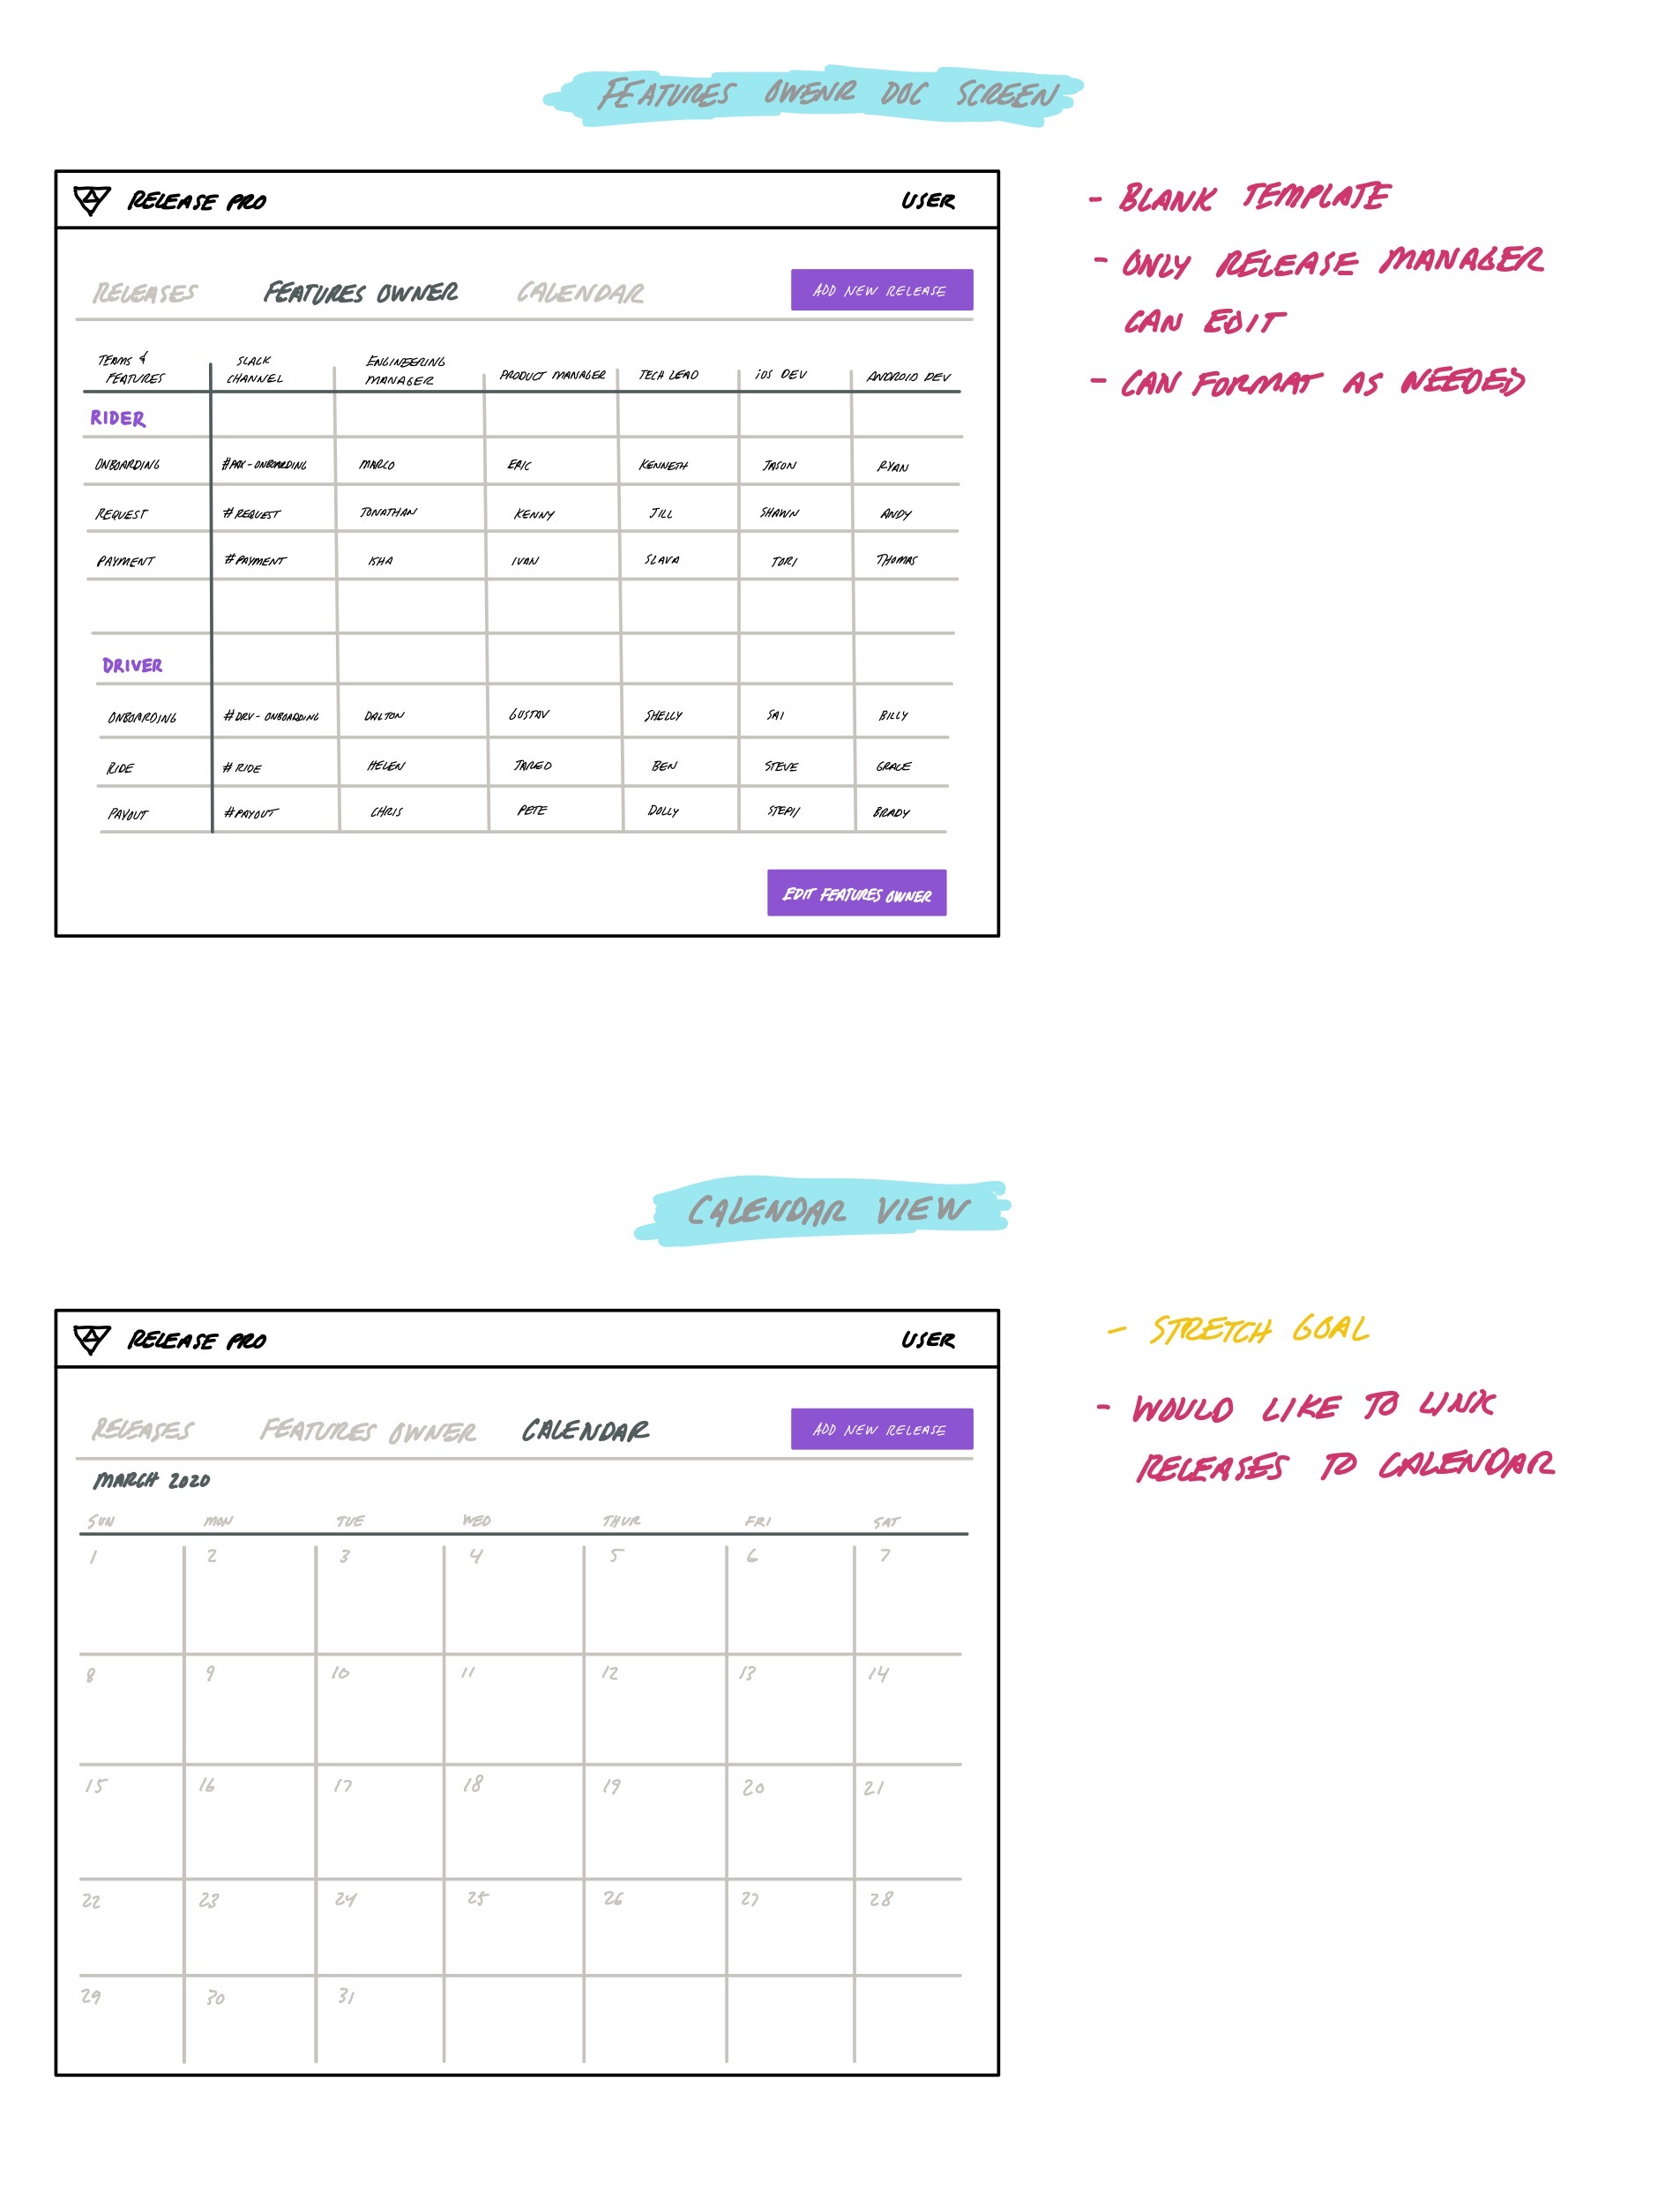 FEATURES OWENR DOC SCREEN
RELEASE PRO USER
RELEASES FEATURES OWNER CALENDAR ADD NEW RELEASE
TEAMS & FEATURES SLACK CHANNEL ENGINEERING MANAGER PRODUCT MANAGER TECH LEAD iOS DEV ANDROID DEV
RIDER
ONBOARDING #PAX-ONBOARDING MARCO ERIC KENNETH JASON RYAN
REQUEST #REQUEST JONATHAN KENNY JILL SHAWN ANDY
PAYMENT #PAYMENT KHA IVAN SLAVA TORI THOMAS
DRIVER
ONBOARDING #DRV-ONBOARDING DALTON GUSTAV SHELLY SAI BILLY
RIDE #RIDE HELEN JARED BEN STEVE GRACE
PAYOUT #PAYOUT CHRIS PETE DOLLY STEPH BRADY
EDIT FEATURES OWNER
- BLANK TEMPLATE
- ONLY RELEASE MANAGER
CAN EDIT
- CAN FORMAT AS NEEDED
CALENDAR VIEW
RELEASE PRO USER
RELEASES FEATURES OWNER CALENDAR ADD NEW RELEASE
MARCH 2020
SUN MON TUE WED THUR FRI SAT
1 2 3 4 5 6 7
8 9 10 11 12 13 14
15 16 17 18 19 20 21
22 23 24 25 26 27 28
29 30 31
- STRETCH GOAL
- WOULD LIKE TO LINK
RELEASES TO CALENDAR